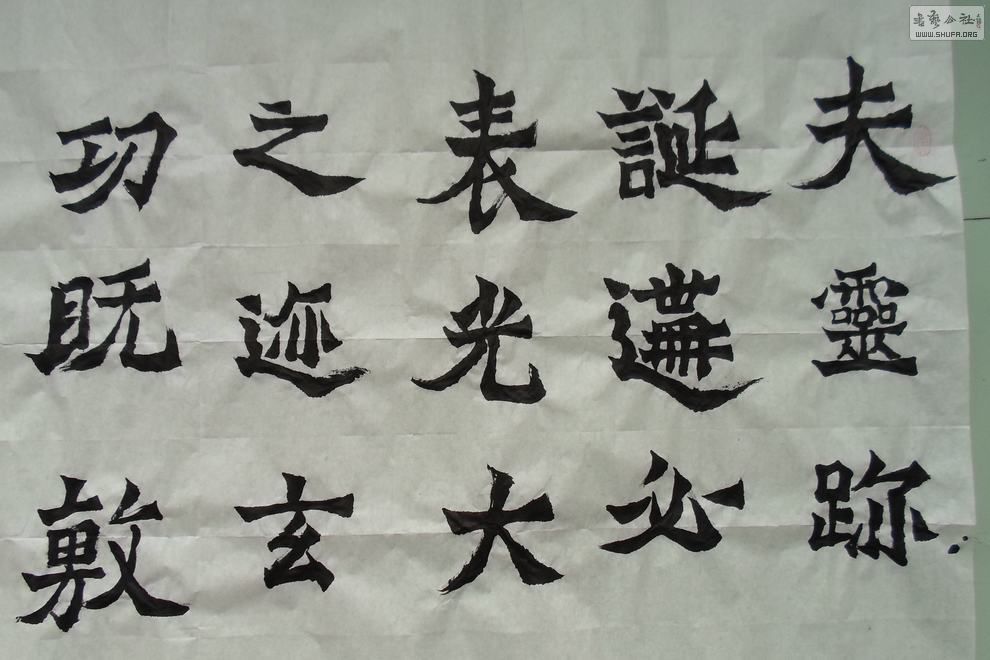 夫靈跡
誕遘必
表光大
之迹玄
功既敷
書藝公社
WWW.SHUFA.ORG